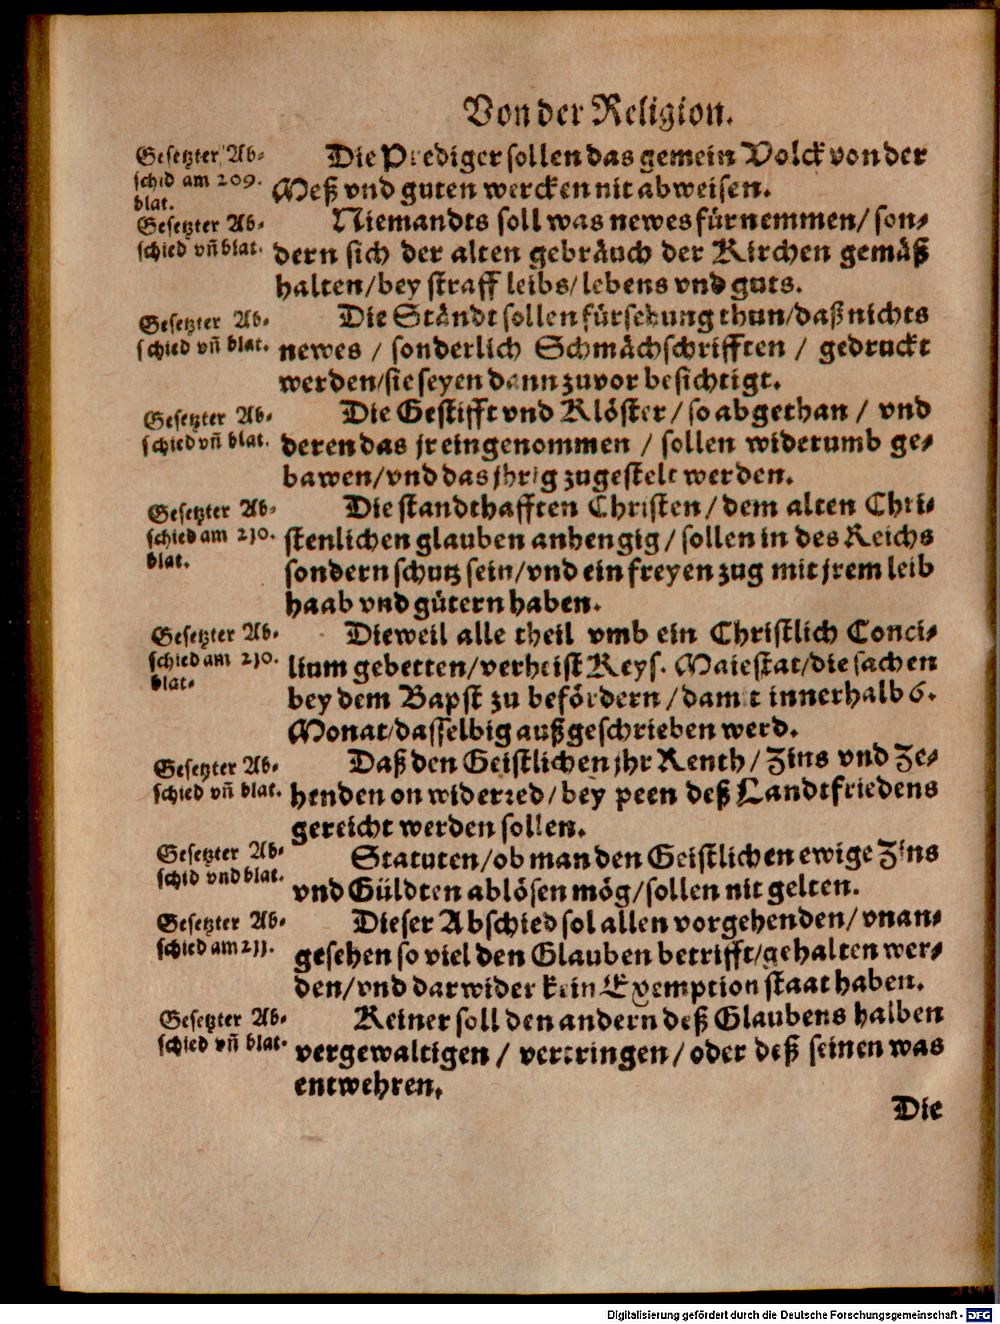 Von der Religion.
Gesetzter Ab-
schid am 209.
blat.
Die Prediger sollen das gemein Volck von der
Meß vnd guten wercken nit abweisen.
Gesetzter Ab-
schied vñ blat.
Niemandts soll was newes fürnemmen/ son-
dern sich der alten gebräuch der Kirchen gemäß
halten/ bey straff leibs/ lebens vnd guts.
Gesetzter Ab-
schied vñ blat.
Die Ständt sollen fürsehung thun/ daß nichts
newes / sonderlich Schmächschrifften / gedruckt
werden/ sie seyen dann zuvor besichtigt.
Gesetzter Ab-
schied vñ blat.
Die Gestifft vnd Klöster/ so abgethan / vnd
deren das jr eingenommen / sollen widerumb ge-
bawen/ vnd das jhrig zugestelt werden.
Gesetzter Ab-
schied am 210.
blat.
Die standthafften Christen/ dem alten Chri-
stenlichen glauben anhengig/ sollen in des Reichs
sondern schutz sein/ vnd ein freyen zug mit jrem leib
haab vnd gütern haben.
Gesetzter Ab-
schied am 210.
blat.
Dieweil alle theil vmb ein Christlich Conci-
lium gebetten/ verheist Keys. Maiestat/ die sachen
bey dem Bapst zu befördern/ damit innerhalb 6.
Monat/ dasselbig außgeschrieben werd.
Gesetzter Ab-
schied vñ blat.
Daß den Geistlichen jhr Renth/ Zins vnd Ze-
henden on widerred/ bey peen deß Landtfriedens
gereicht werden sollen.
Gesetzter Ab-
schid vnd blat.
Statuten/ ob man den Geistlichen ewige Zins
vnd Güldten ablösen mög/ sollen nit gelten.
Gesetzter Ab-
schied am 211.
Dieser Abschied sol allen vorgehenden/ vnan-
gesehen so viel den Glauben betrifft/ gehalten wer-
den/ vnd darwider kein Exemption staat haben.
Gesetzter Ab-
schied vñ blat.
Keiner soll den andern deß Glaubens halben
vergewaltigen / vertringen/ oder deß seinen was
entwehren.
Die
Digitalisierung gefördert durch die Deutsche Forschungsgemeinschaft - DFG